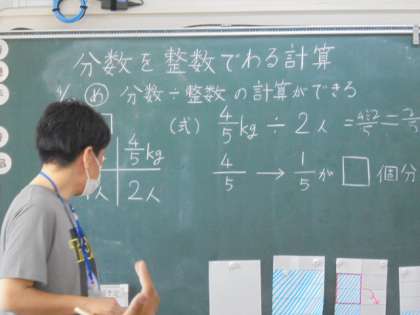 分数を整数でわる計算
め 分数÷整数の計算ができる
(式) 4/5 kg ÷ 2人 = 4÷2/5 =
4/5 kg
4/5 → 1/5が□個分
人 2人